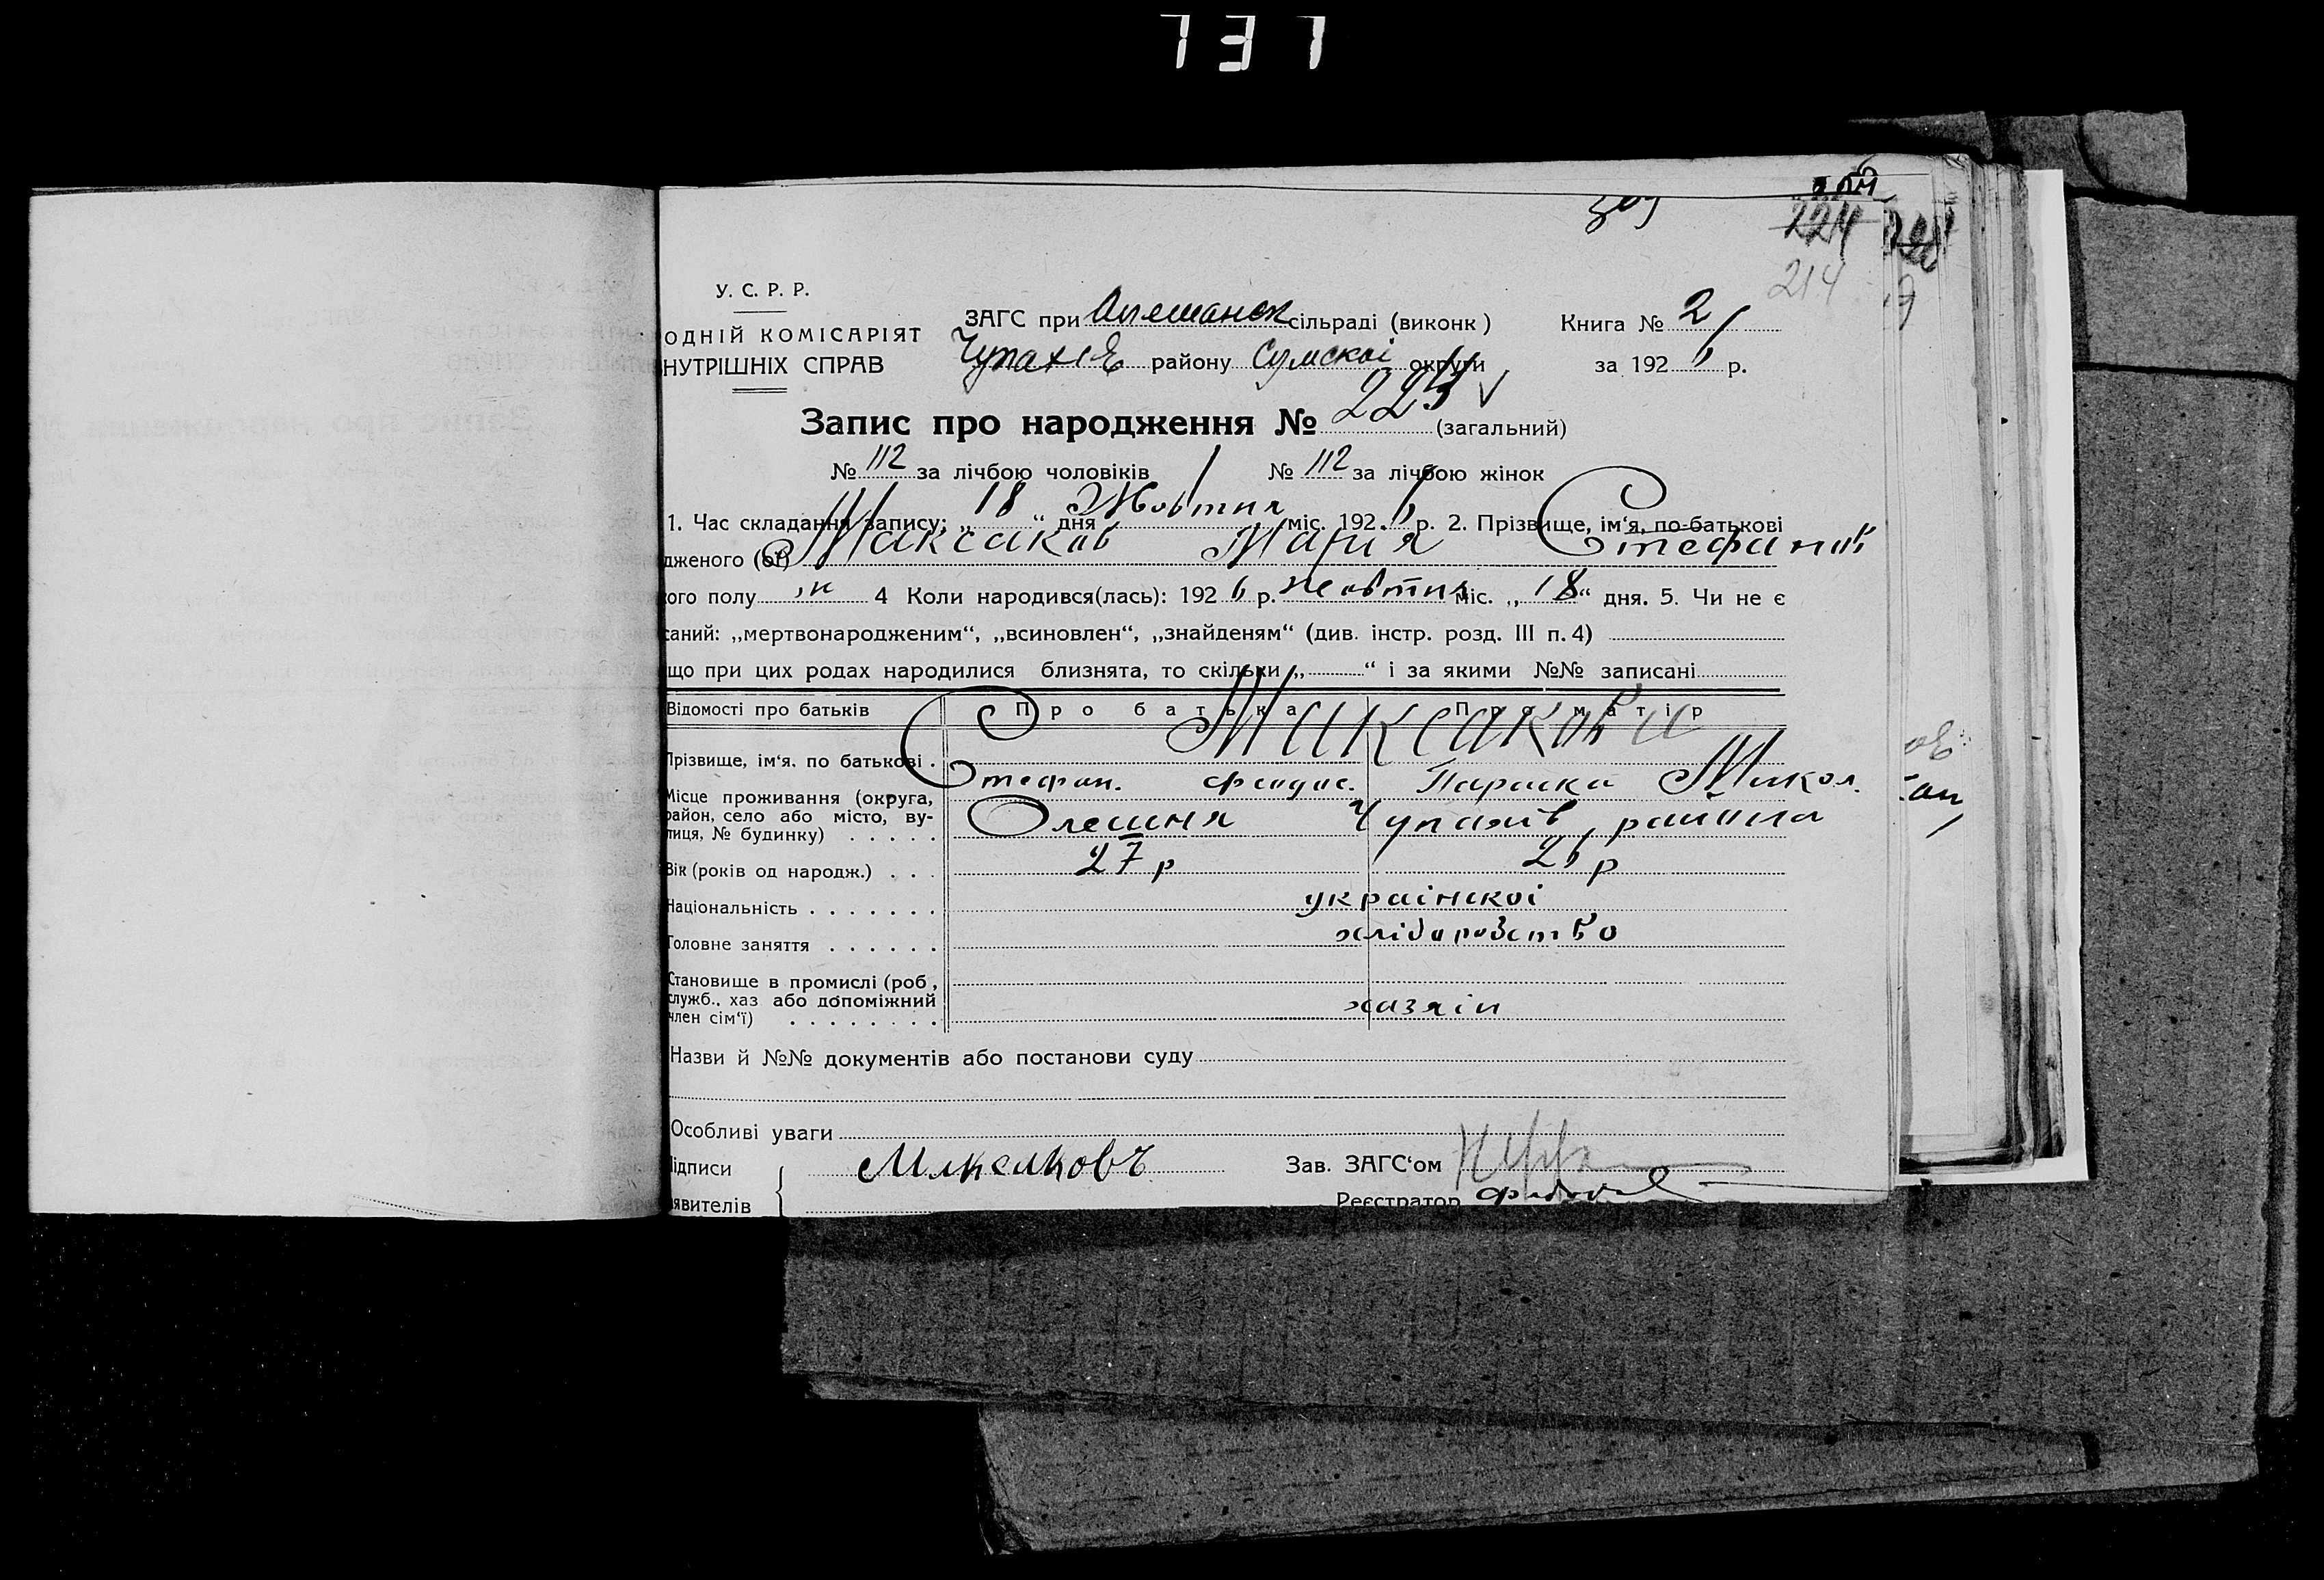 737
224
214
У. С. Р. Р.
ОДНІЙ КОМІСАРІЯТ
НУТРІШНІХ СПРАВ
ЗАГС при Олешанск сільраді (виконк)
Книга № 2
Чупахів району Сумскоі округи
за 1926 р.
Запис про народження № 224 (загальний)
№ 112 за лічбою чоловіків № 112 за лічбою жінок
1. Час складання запису: „18“ дня Жовтня міс. 1926 р. 2. Прізвище, ім‘я, по-батькові
дженого (ої) Максаков Марія Стефанов
ого полу ж 4 Коли народився(лась): 1926 р. жовтня міс. „18“ дня. 5. Чи не є
саний: „мертвонародженим“, „всиновлен“, „знайденям“ (див. інстр. розд. III п. 4)
що при цих родах народилися близнята, то скільки „ “ і за якими №№ записані
Відомості про батьків Про батька Про матір
Максакови
Прізвище, ім‘я. по батькові . Стефан. Параска Микол.
Місце проживання (округа,
район, село або місто, ву-
лиця, № будинку) . . . . . Олешня Чупахів района
Вік (років од народж.) . . . 27 р 26 р
Національність . . . . . . . украінскоі
Головне заняття . . . . . . хліборобство
Становище в промислі (роб,
служб., хаз або допоміжний
член сім‘ї) . . . . . . . . хазяін
Назви й №№ документів або постанови суду
Особливі уваги
ідписи Максаковъ Зав. ЗАГС‘ом
явителів Реєстратор